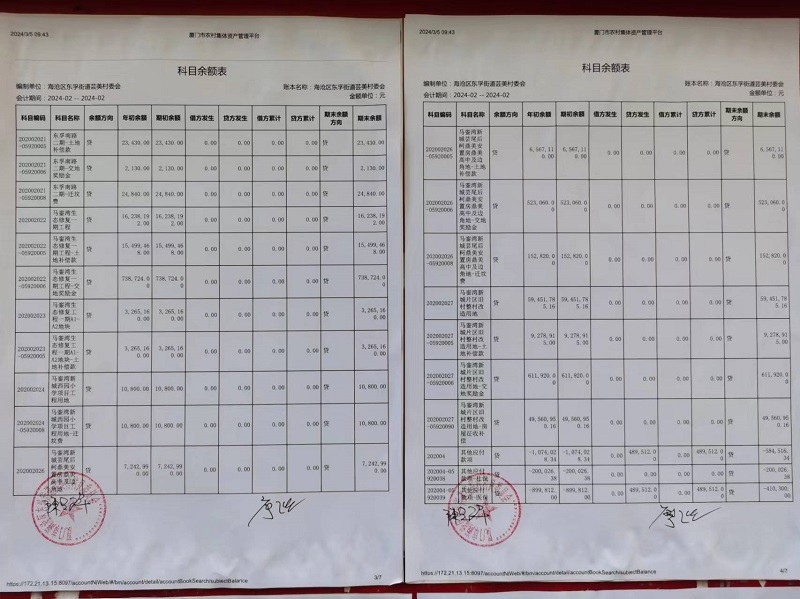 2024/3/5 09:43
厦门市农村集体资产管理平台
科目余额表
编制单位：海沧区东孚街道芸美村委会
账本名称：海沧区东孚街道芸美村委会
会计期间：2024-02 -- 2024-02
金额单位：元
科目编码 科目名称 余额方向 年初余额 期初余额 借方发生 贷方发生 借方累计 贷方累计 期末余额方向 期末余额
202002021-05920005 东孚南路二期-土地补偿款 贷 23,430.00 23,430.00 0.00 0.00 0.00 0.00 贷 23,430.00
202002021-05920006 东孚南路二期-交地奖励金 贷 2,130.00 2,130.00 0.00 0.00 0.00 0.00 贷 2,130.00
202002021-05920008 东孚南路二期-迁坟费 贷 24,840.00 24,840.00 0.00 0.00 0.00 0.00 贷 24,840.00
202002022 马銮湾生态修复一期工程 贷 16,238,192.00 16,238,192.00 0.00 0.00 0.00 0.00 贷 16,238,192.00
202002022-05920005 马銮湾生态修复一期工程-土地补偿款 贷 15,499,468.00 15,499,468.00 0.00 0.00 0.00 0.00 贷 15,499,468.00
202002022-05920006 马銮湾生态修复一期工程-交地奖励金 贷 738,724.00 738,724.00 0.00 0.00 0.00 0.00 贷 738,724.00
202002023 马銮湾生态修复工程一期A1-A2地块 贷 3,265,160.00 3,265,160.00 0.00 0.00 0.00 0.00 贷 3,265,160.00
202002023-05920005 马銮湾生态修复工程一期A1-A2地块-土地补偿款 贷 3,265,160.00 3,265,160.00 0.00 0.00 0.00 0.00 贷 3,265,160.00
202002024 马銮湾新城西园小学项目工程用地 贷 10,800.00 10,800.00 0.00 0.00 0.00 0.00 贷 10,800.00
202002024-05920008 马銮湾新城西园小学项目工程用地-迁坟费 贷 10,800.00 10,800.00 0.00 0.00 0.00 0.00 贷 10,800.00
202002026 马銮湾新城芸尾后柯鼎美安置房鼎美高中及边角地 贷 7,242,990.00 7,242,990.00 0.00 0.00 0.00 0.00 贷 7,242,990.00
https://172.21.13.15:8097/accountN/Web/#/bn/account/detail/accountBookSearch/subjectBalance
3/7
2024/3/5 09:43
厦门市农村集体资产管理平台
科目余额表
编制单位：海沧区东孚街道芸美村委会
账本名称：海沧区东孚街道芸美村委会
会计期间：2024-02 -- 2024-02
金额单位：元
科目编码 科目名称 余额方向 年初余额 期初余额 借方发生 贷方发生 借方累计 贷方累计 期末余额方向 期末余额
202002026-05920005 马銮湾新城芸尾后柯鼎美安置房鼎美高中及边角地-土地补偿款 贷 6,567,110.00 6,567,110.00 0.00 0.00 0.00 0.00 贷 6,567,110.00
202002026-05920006 马銮湾新城芸尾后柯鼎美安置房鼎美高中及边角地-交地奖励金 贷 523,060.00 523,060.00 0.00 0.00 0.00 0.00 贷 523,060.00
202002026-05920008 马銮湾新城芸尾后柯鼎美安置房鼎美高中及边角地-迁坟费 贷 152,820.00 152,820.00 0.00 0.00 0.00 0.00 贷 152,820.00
202002027 马銮湾新城片区旧村整村改造用地 贷 59,451,785.16 59,451,785.16 0.00 0.00 0.00 0.00 贷 59,451,785.16
202002027-05920005 马銮湾新城片区旧村整村改造用地-土地补偿款 贷 9,278,915.00 9,278,915.00 0.00 0.00 0.00 0.00 贷 9,278,915.00
202002027-05920006 马銮湾新城片区旧村整村改造用地-交地奖励金 贷 611,920.00 611,920.00 0.00 0.00 0.00 0.00 贷 611,920.00
202002027-05920090 马銮湾新城片区旧村整村改造用地-房屋征收补偿 贷 49,560,950.16 49,560,950.16 0.00 0.00 0.00 0.00 贷 49,560,950.16
202004 其他应付款项 贷 -1,074,028.34 -1,074,028.34 0.00 489,512.00 0.00 489,512.00 贷 -584,516.34
202004-05920038 其他应付款项-社保 贷 -200,026.38 -200,026.38 0.00 0.00 0.00 0.00 贷 -200,026.38
202004-05920039 其他应付款项-医保 贷 -899,812.00 -899,812.00 0.00 489,512.00 0.00 489,512.00 贷 -410,300.00
https://172.21.13.15:8097/accountN/Web/#/bn/account/detail/accountBookSearch/subjectBalance
4/7